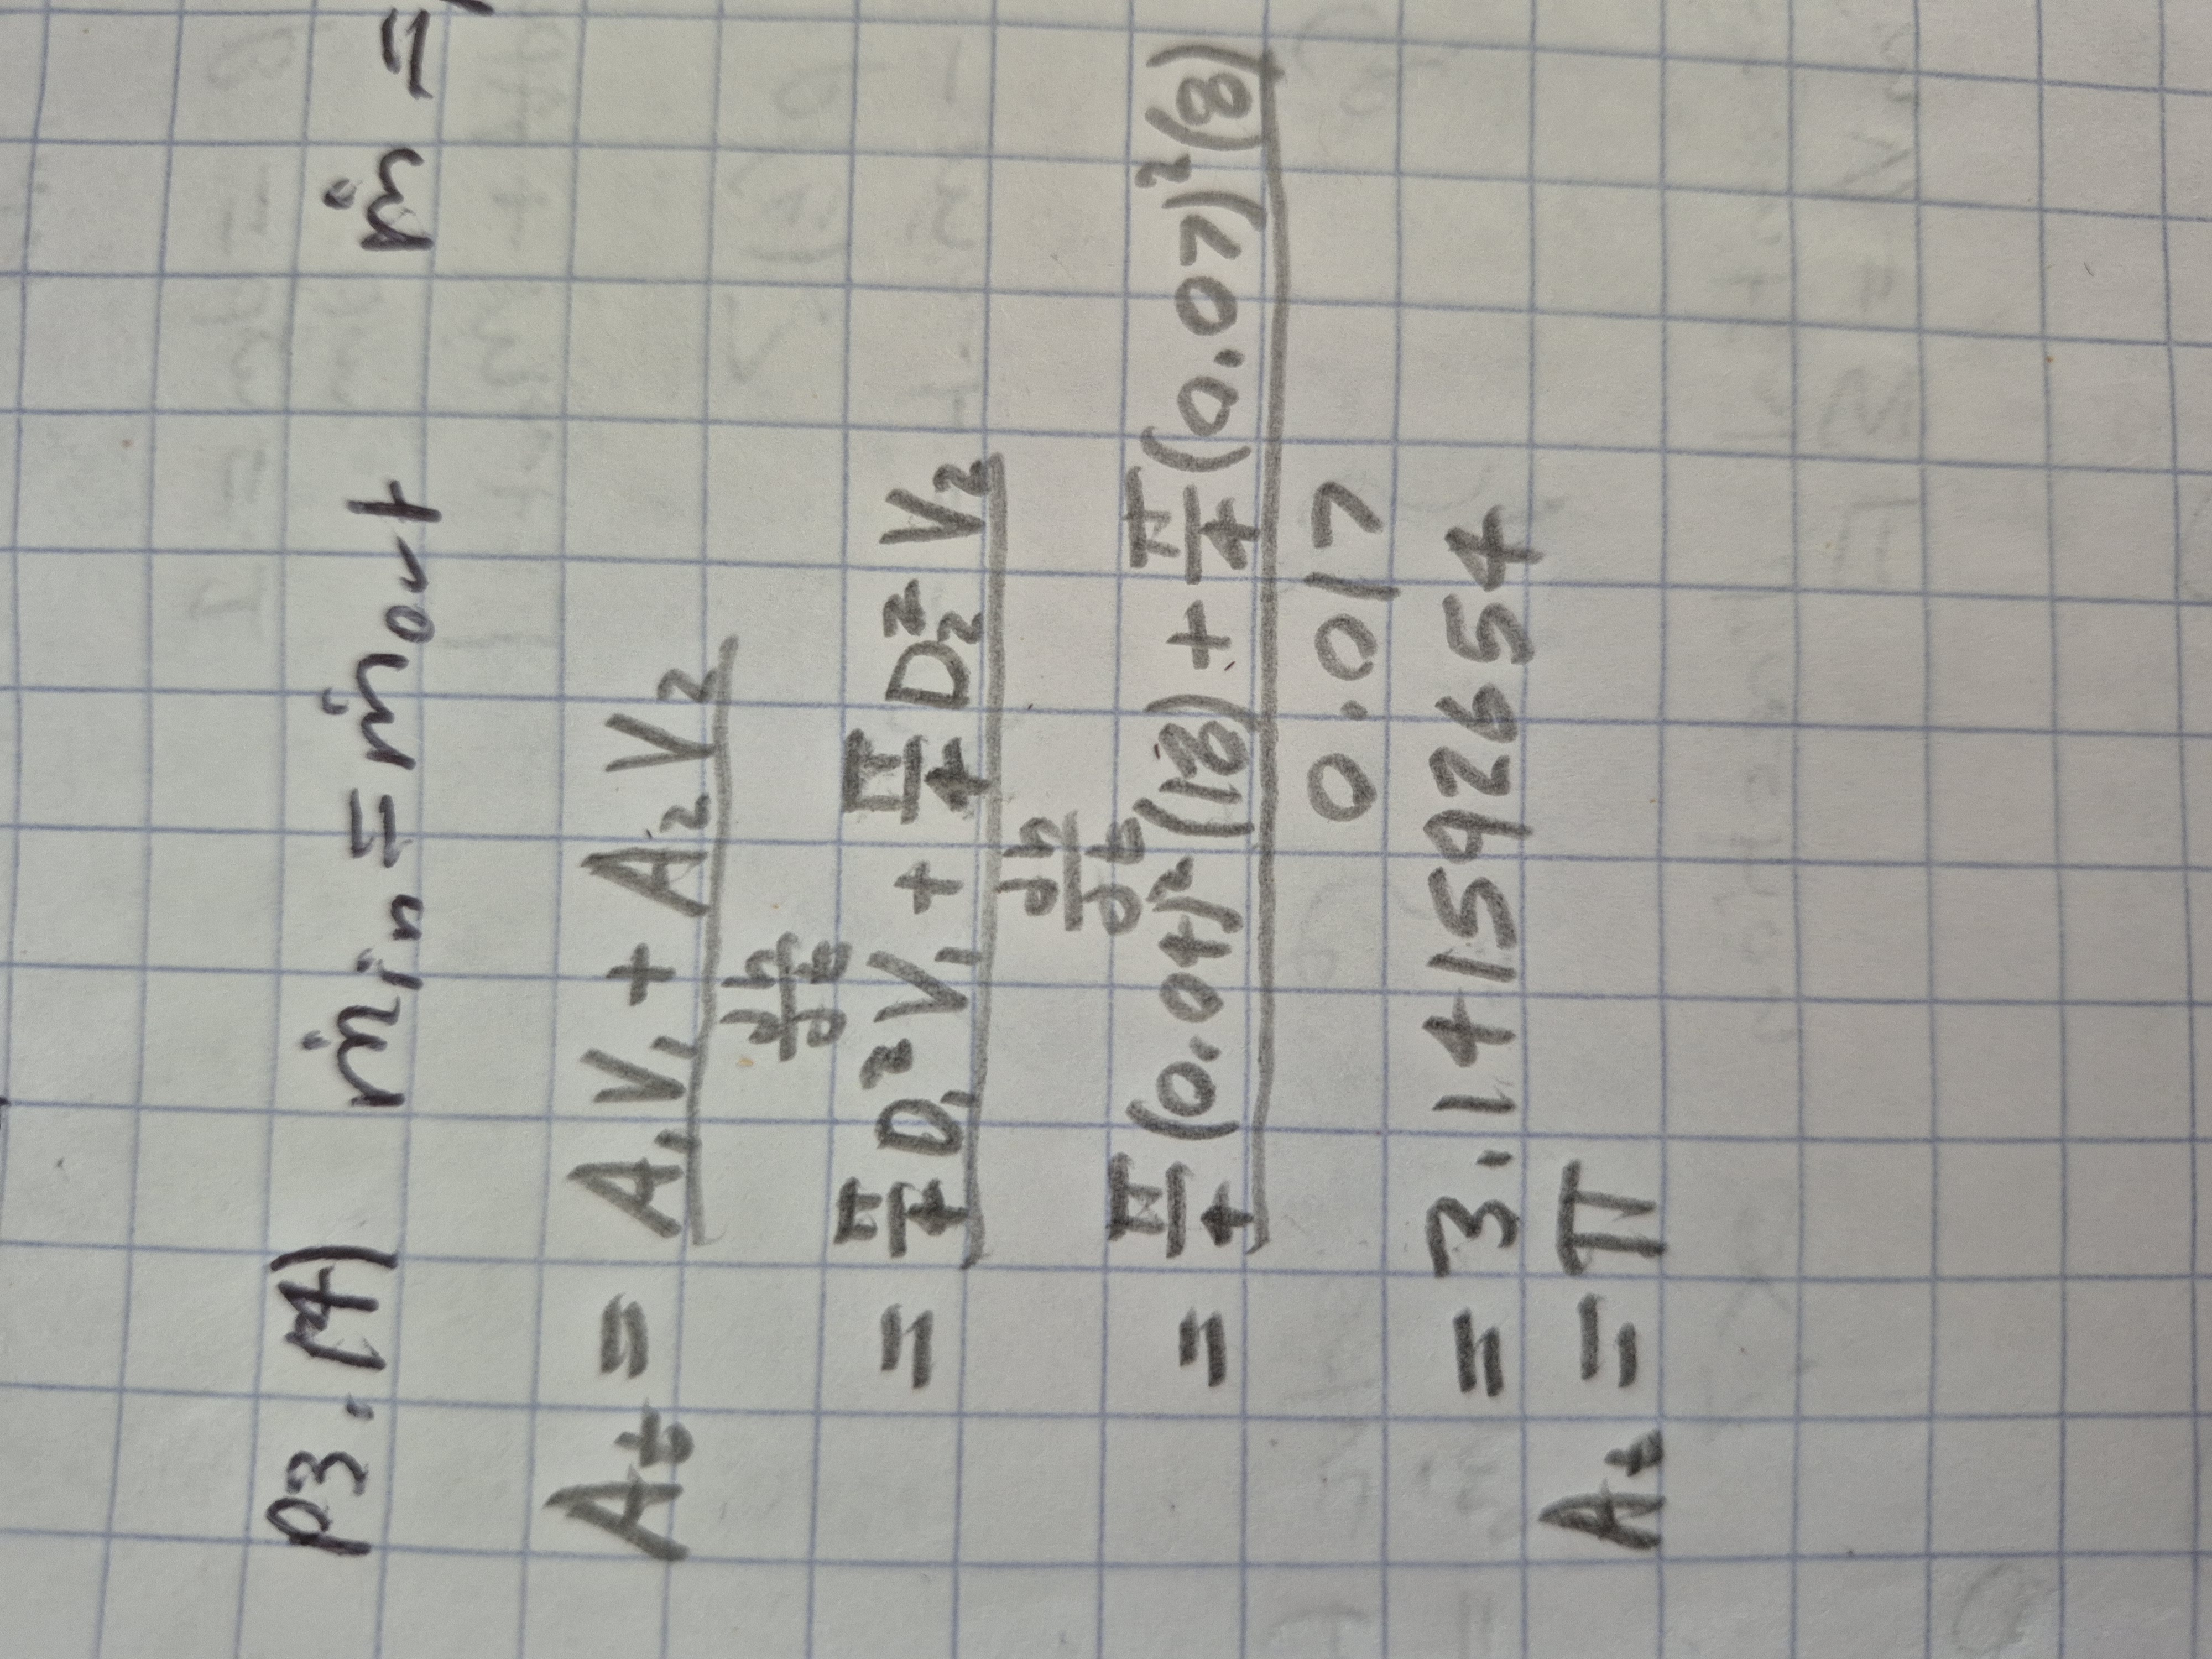 P3.14) ṁin = ṁout ṁ =
At = A₁V₁ + A₂V₂ / dh/dt
= π/4 D₁²V₁ + π/4 D₂²V₂ / dh/dt
= π/4 (0.04)²(18) + π/4 (0.07)²(8) / 0.017
= 3.141592654
At = π